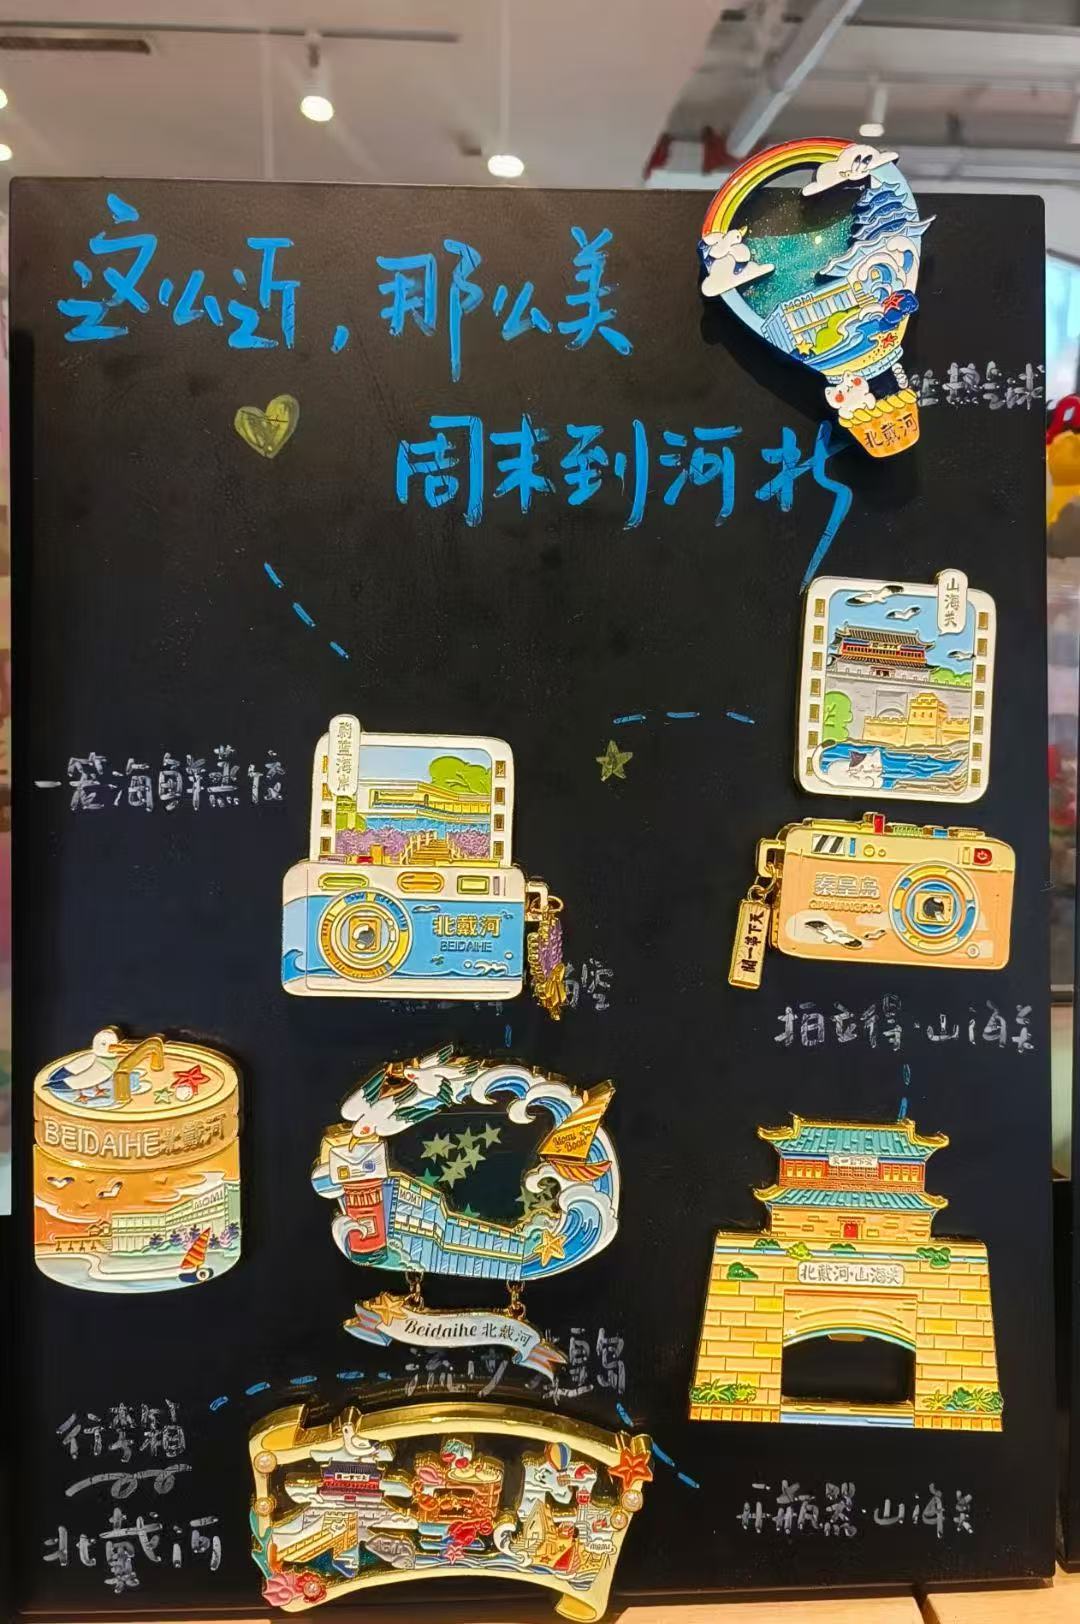 这么近，那么美
周末到河北
MOMI
北戴河
热气球
山海关
蔚蓝海岸
一笼海鲜蒸饺
北戴河
BEIDAIHE
秦皇岛
QINHUANGDAO
天下第一关
拍立得·山海关
BEIDAIHE北戴河
MOMI
Momi Book
MOMI
Beidaihe 北戴河
流沙 秦皇岛
天下第一关
北戴河·山海关
行李箱
北戴河
MOMI
开瓶器·山海关